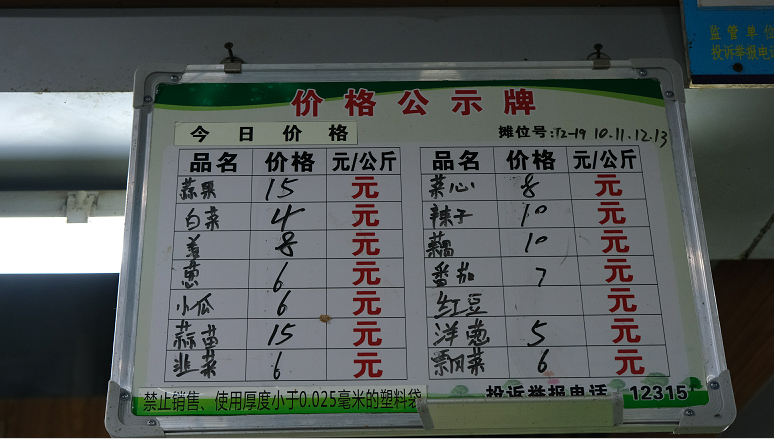 监管单位
投诉举报电话
价格公示牌
今日价格 摊位号:T2-19 10.11.12.13
品名 价格 元/公斤 品名 价格 元/公斤
蒜果 15 元 菜心 8 元
白菜 4 元 辣子 10 元
姜 8 元 藕 10 元
葱 6 元 番茄 7 元
小瓜 6 元 红豆 元
蒜苗 15 元 洋葱 5 元
韭菜 6 元 瓢菜 6 元
禁止销售、使用厚度小于0.025毫米的塑料袋 投诉举报电话 12315